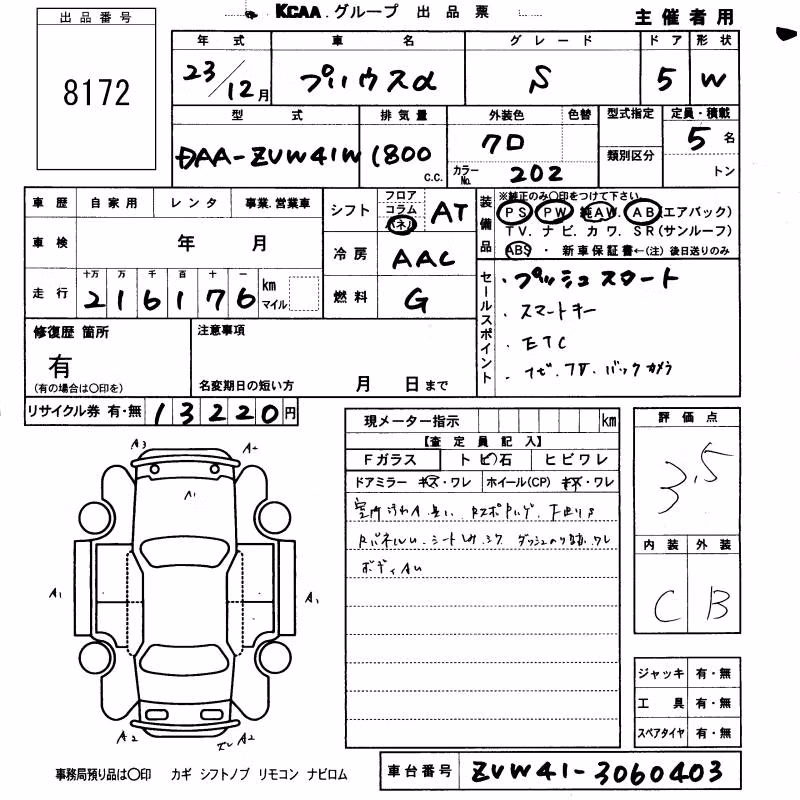 KCAA グループ 出品票
主催者用
出品番号
8172
年式 車名 グレード ドア 形状
23/12月 プリウスα S 5 W
型式 排気量 外装色 色替 型式指定 定員・積載
DAA-ZVW41W 1800 c.c. クロ 類別区分 5名
カラーNo. 202 トン
車歴 自家用 レンタ 事業.営業車
シフト フロア コラム パネル AT
装備品
※純正のみ〇印をつけて下さい
PS PW 純AW. AB(エアバック)
TV. ナビ. カワ. SR(サンルーフ)
ABS ・ 新車保証書←(注) 後日送りのみ
車検 年 月
冷房 AAC
走行 十万 万 千 百 十 一
216176 km マイル
燃料 G
セールスポイント
・プッシュスタート
・スマートキー
・ETC
・ナビ.TV.バックカメラ
修復歴 箇所
有
(有の場合は〇印を)
注意事項
名変期日の短い方 月 日まで
リサイクル券 有・無 13220円
現メーター指示 km
【査定員記入】
Fガラス トビ石 ヒビワレ
ドアミラー キズ・ワレ ホイール(CP) キズ・ワレ
ボディAU
評価点
3.5
内装 外装
C B
A3 A2
A1
A1 A1
A2 A2
ジャッキ 有・無
工具 有・無
スペアタイヤ 有・無
事務局預り品は〇印 カギ シフトノブ リモコン ナビロム
車台番号 ZVW41-3060403